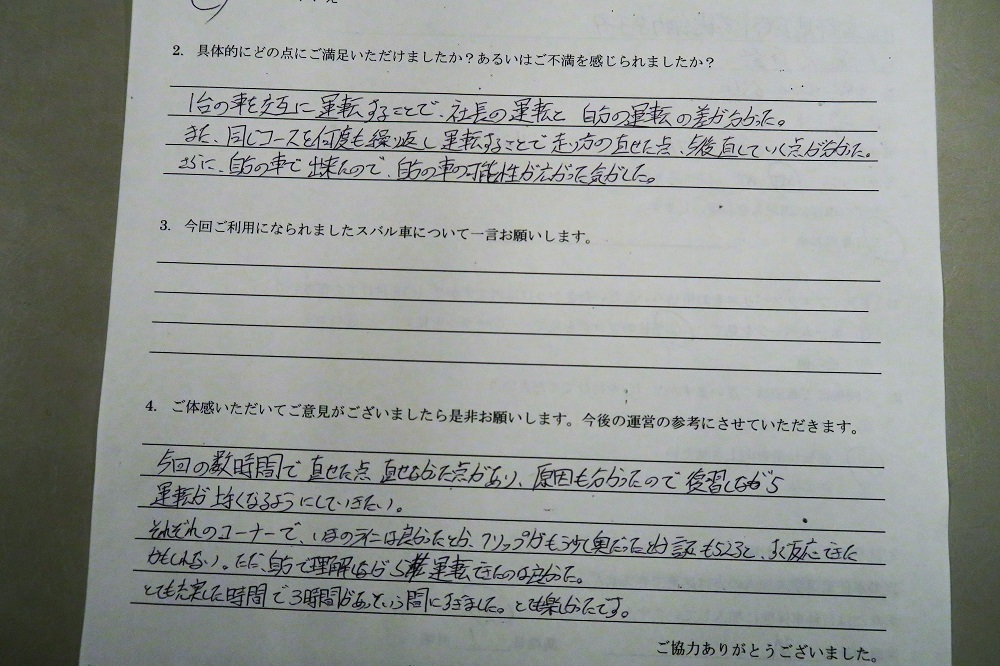 2. 具体的にどの点にご満足いただけましたか？あるいはご不満を感じられましたか？
1台の車を交互に運転することで、社長の運転と 自分の運転の差が分かった。
また、同じコースを何度も繰り返し運転することで走り方の直せた点、今後直していく点が分かった。
さらに、自分の車で出来たので、自分の車の可能性が広がった気がした。
3. 今回ご利用になられましたスバル車について一言お願いします。
4. ご体感いただいてご意見がございましたら是非お願いします。今後の運営の参考にさせていただきます。
今回の数時間で直せた点 直せなかった点があり、原因も分かったので復習しながら
運転が上手くなるようにしていきたい。
それぞれのコーナーで、いまのラインは良かったとか、クリップがもう少し奥だったとか
かもしれない。ただ、自分で理解しながら運転できたのは良かった。
とても充実した時間で3時間があっという間にすぎました。とても楽しかったです。
ご協力ありがとうございました。